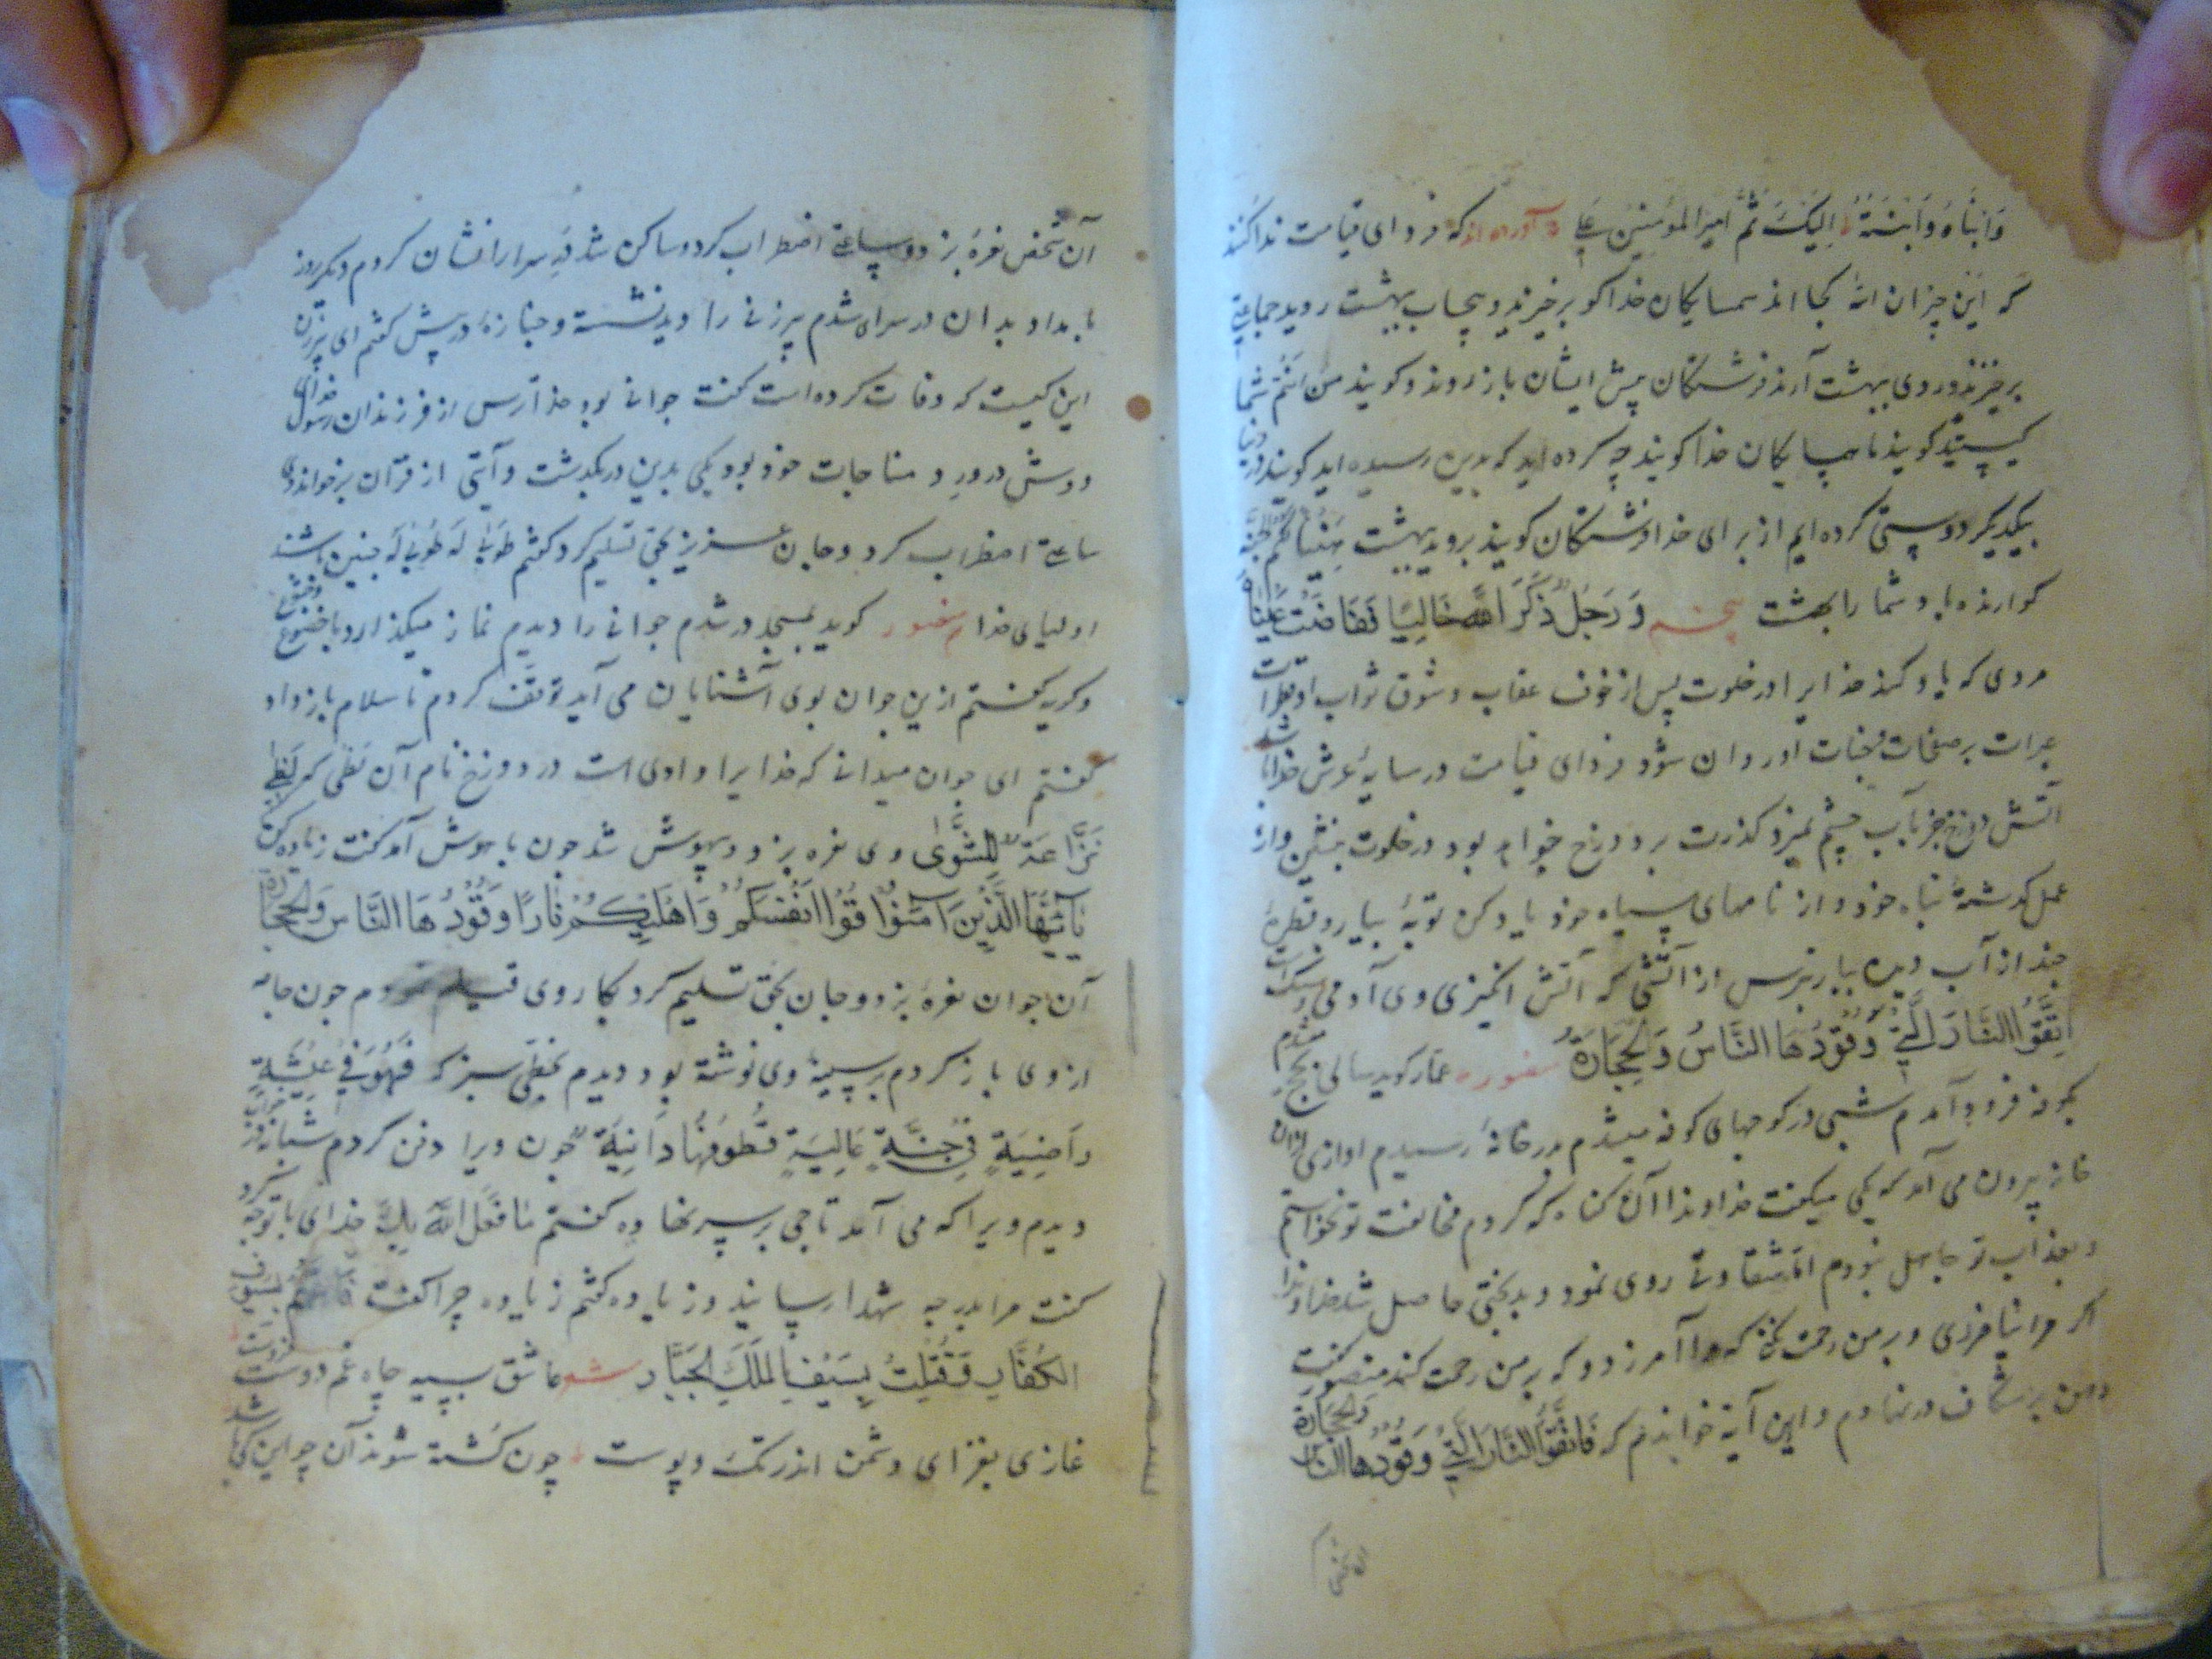 وَابْنَاهُ وَابْنَتَهُ اِلَیْكَ ثُمَّ امیر المؤمنین علی که فردای قیامت ندا کنند
که این جیران الله کجا اند همسایکان خدا کو برخیزید و بهشت روید جماعتی
برخیزند و روی ببهشت آرند فرشتکان پیش ایشان باز روند و کویند من انتم شما
کیستید کویند ما همسایکان خدا کویند چه کرده اید که بدین رسیده اید کویند در دنیا
بیکدیکر دوستی کرده ایم از برای خدا فرشتکان کویند بروید ببهشت هَنِیئًا لَكُمُ الْجَنَّةُ
کوارنده باد شما را بهشت پنجم وَ رَجُلٌ ذَكَرَ اللهَ خَالِیًا فَفَاضَتْ عَیْنَاهُ
مردی که یاد کند خدایرا در خلوت پس از خوف عقاب و شوق ثواب او قطرات
عبرات بر صفحات وجنات او روان شود فردای قیامت در سایهٔ عرش خدا باشد
آتش دوزخ جز بآب چشم نمیرد کذرت بر دوزخ خواهد بود در خلوت بنشین و از
عمل کذشتهٔ تباه خود و از نامهای سیاه خود یاد کن توبهٔ بیار و قطرهٔ
چند از آب دیده ببار بترس از آتشی که آتش انکیزی وی آدمی و سنکست
اِتَّقُوا النَّارَ الَّتِی وَقُودُهَا النَّاسُ وَالْحِجَارَةُ منصور عمار کوید سالی بحج میشدم
بکوفه فرود آمدم شبی در کوچهای کوفه میشدم بدر خانهٔ رسیدم اوازی ازان
خانه بیرون می آمد که یکی میکفت خداوندا آن کناه که کردم مخالفت تو نخواستم
و بعذاب تو جاهل نبودم اما شقاوتی روی نمود و بدبختی حاصل شد خداوندا
اکر مرا نیامرزی و بر من رحمت نکنی که مرا آمرزد و که بر من رحمت کند منصور کفت
دهن بر شکاف در نهادم و این آیة خواندم که فَاتَّقُوا النَّارَ الَّتِی وَقُودُهَا النَّاسُ وَالْحِجَارَةُ
آن شخص نعرهٔ بزد و ساعتی اضطراب کرد و ساکن شد در سرا را نشان کردم دیکر روز
بامداد بدان در سرای شدم پیرزنی را دیدم نشسته و جنازهٔ در پیش کفتم ای پیرزن
این کیست که وفات کرده است کفت جوانی بود خدا ترس از فرزندان رسول خدای
دوش در ورد و مناجات خود بود یکی بدین در بکذشت و آیتی از قرآن برخواند وی
ساعتی اضطراب کرد و جان عزیز بحق تسلیم کرد کفتم طُوبٰی لَه طُوبٰی لَه چنین باشند
اولیای خدا منصور کوید بمسجد در شدم جوانی را دیدم نماز میکذارد با خضوع و خشوع
و کریه کفتم ازین جوان بوی آشنایان می آید توقف کردم تا سلام باز داد
کفتم ای جوان میدانی که خدایرا وادی است در دوزخ نام آن لظی که لَظٰی
نَزَّاعَةً لِلشَّوٰی وی نعره بزد و بیهوش شد چون با هوش آمد کفت زیاده کن
یَا اَیُّهَا الَّذِینَ آمَنُوا قُوا اَنْفُسَكُمْ وَاَهْلِیكُمْ نَارًا وَقُودُهَا النَّاسُ وَالْحِجَارَةُ
آن جوان نعرهٔ بزد و جان بحق تسلیم کرد بکار وی قیام نمودم چون جامه
از وی باز کردم بر سینهٔ وی نوشته بود دیدم بخطی سبز که فَهُوَ فِی عِیشَةٍ
رَاضِیَةٍ فِی جَنَّةٍ عَالِیَةٍ قُطُوفُهَا دَانِیَةٌ چون ویرا دفن کردم شبانه در خواب
دیدم ویرا که می آمد تاجی بر سر نهاده کفتم مَا فَعَلَ اللهُ بِكَ خدای با تو چه کرد
کفت مرا بدرجهٔ شهدا رسانید و زیاده کفتم زیاده چرا کفت بِسُیُوفِ
الكُفَّارِ وَقُتِلْتُ بِسَیْفِ المَلِكِ الجَبَّارِ عاشق چاه غم دوست
غازی بغزای دشمن اندر تک و پوست چون کشته شوند آن چو این کی باشد